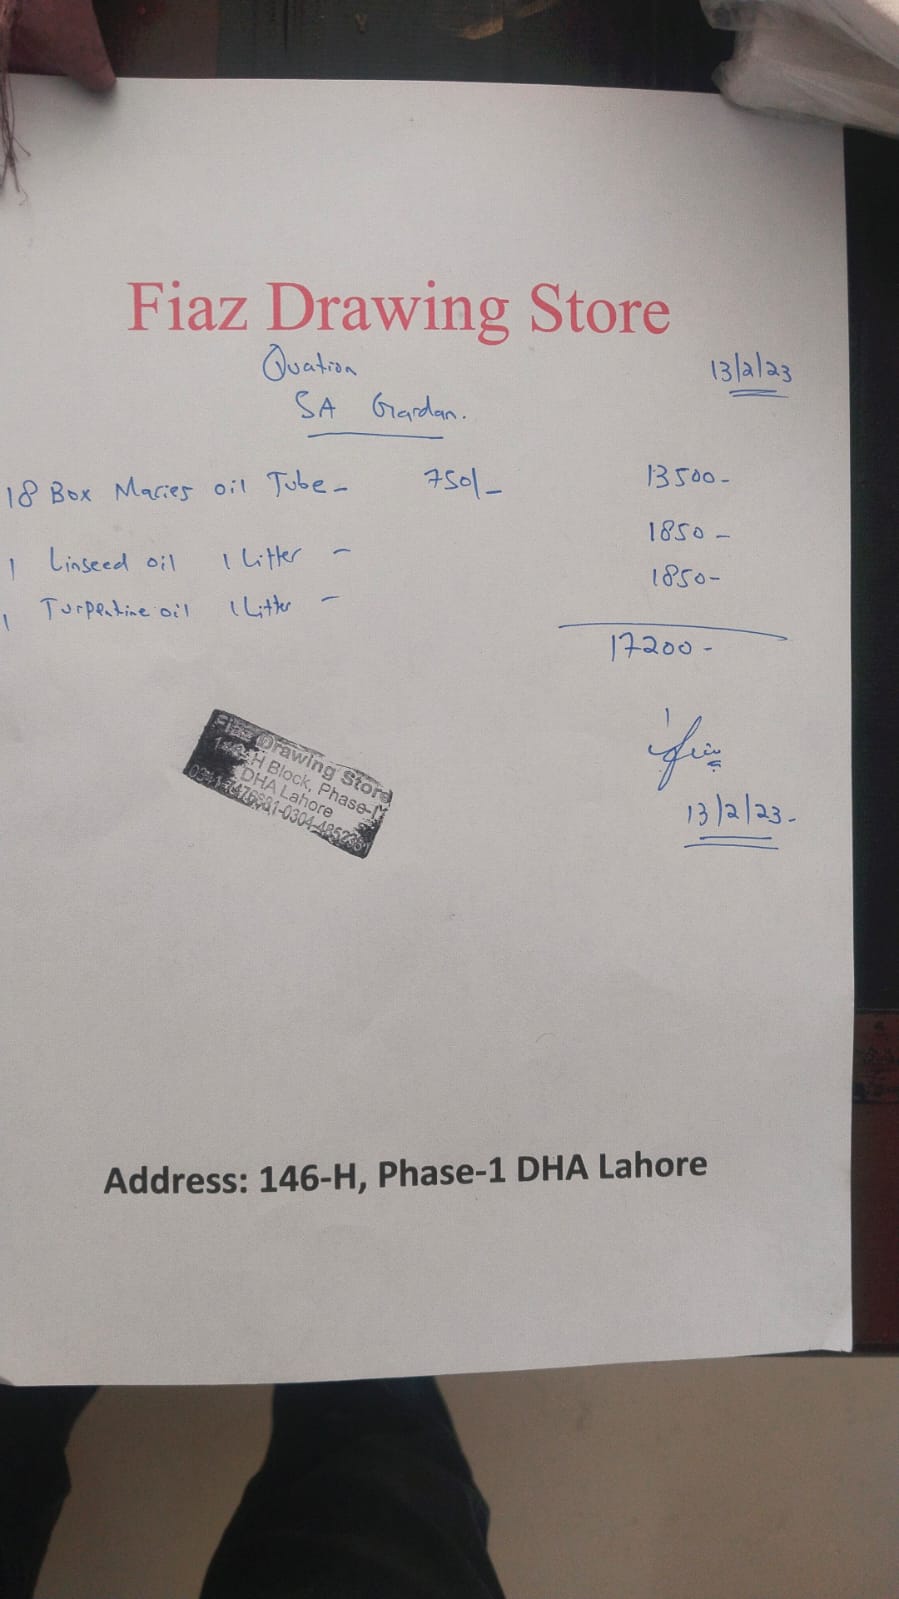 Fiaz Drawing Store
Quation
13/2/23
SA Gardan.
18 Box Maries oil Tube - 750/- 13500-
1 Linseed oil 1 Litter - 1850-
1 Turpentine oil 1 Litter - 1850-
17200-
Fiaz Drawing Store
H Block, Phase-1
DHA Lahore
13/2/23-
Address: 146-H, Phase-1 DHA Lahore